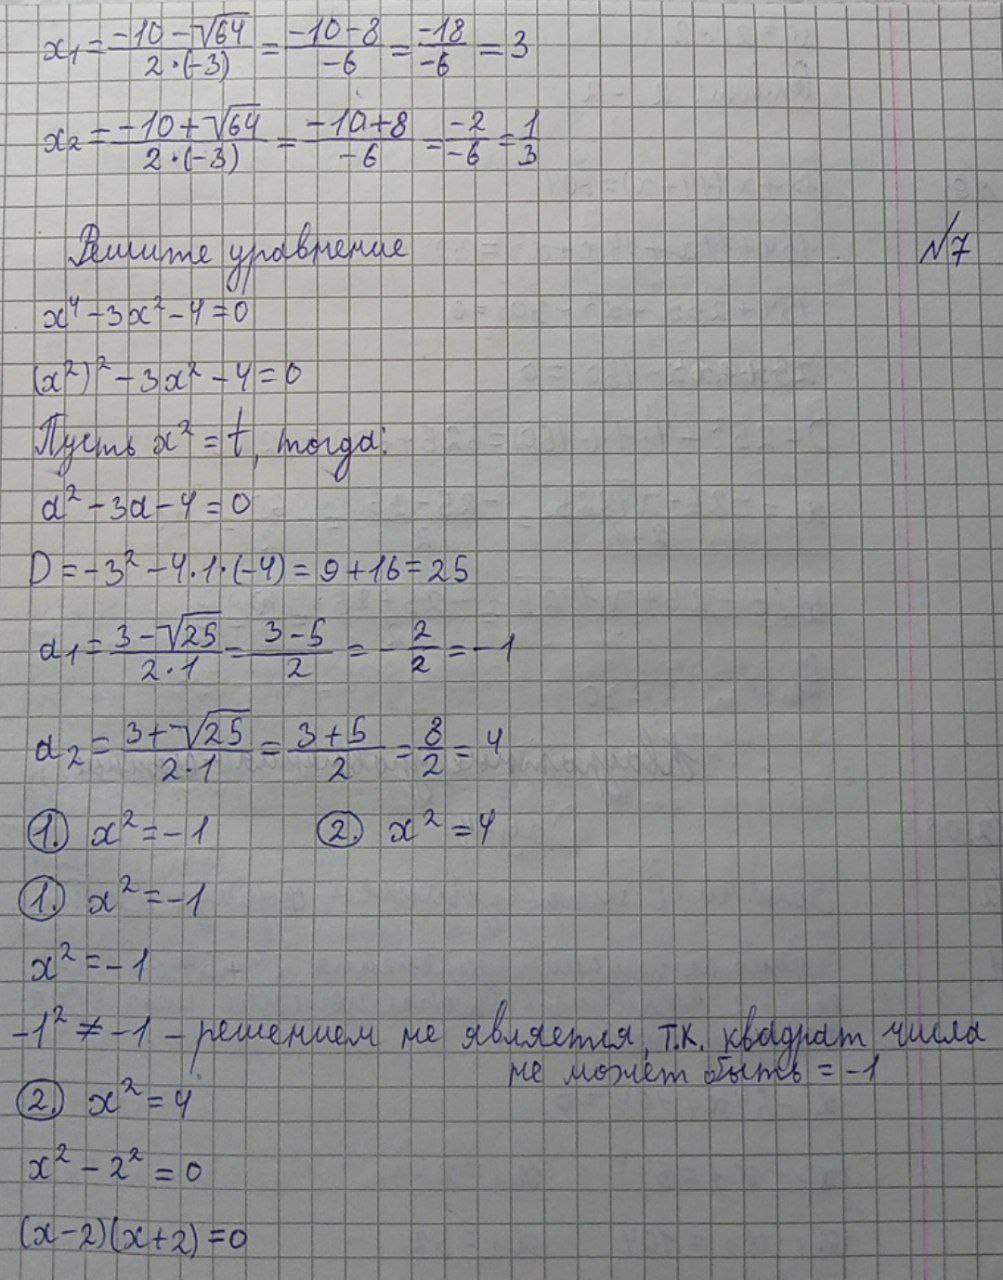 x₁ = (-10 - √64)/(2·(-3)) = (-10-8)/(-6) = (-18)/(-6) = 3
x₂ = (-10 + √64)/(2·(-3)) = (-10+8)/(-6) = (-2)/(-6) = 1/3
Решите уравнение №7
x⁴ - 3x² - 4 = 0
(x²)² - 3x² - 4 = 0
Пусть x² = t, тогда:
a² - 3a - 4 = 0
D = -3² - 4·1·(-4) = 9 + 16 = 25
a₁ = (3 - √25)/(2·1) = (3-5)/2 = -2/2 = -1
a₂ = (3 + √25)/(2·1) = (3+5)/2 = 8/2 = 4
1. x² = -1 2. x² = 4
1. x² = -1
x² = -1
-1² ≠ -1 - решением не является, т.к. квадрат числа
не может быть = -1
2. x² = 4
x² - 2² = 0
(x-2)(x+2) = 0